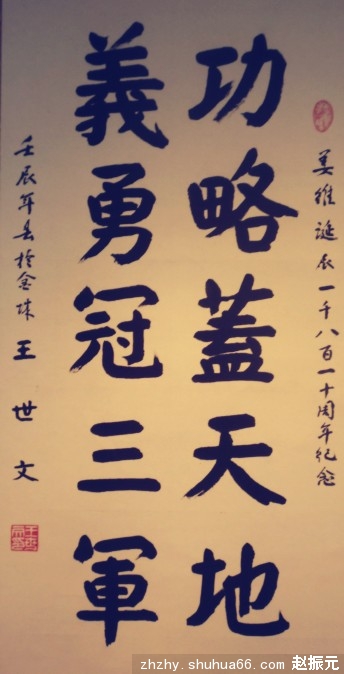 姜維誕辰一千八百一十周年纪念
功略蓋天地
義勇冠三軍
壬辰年春於金城
王世文
zhzhy.shuhua66.com 赵振元